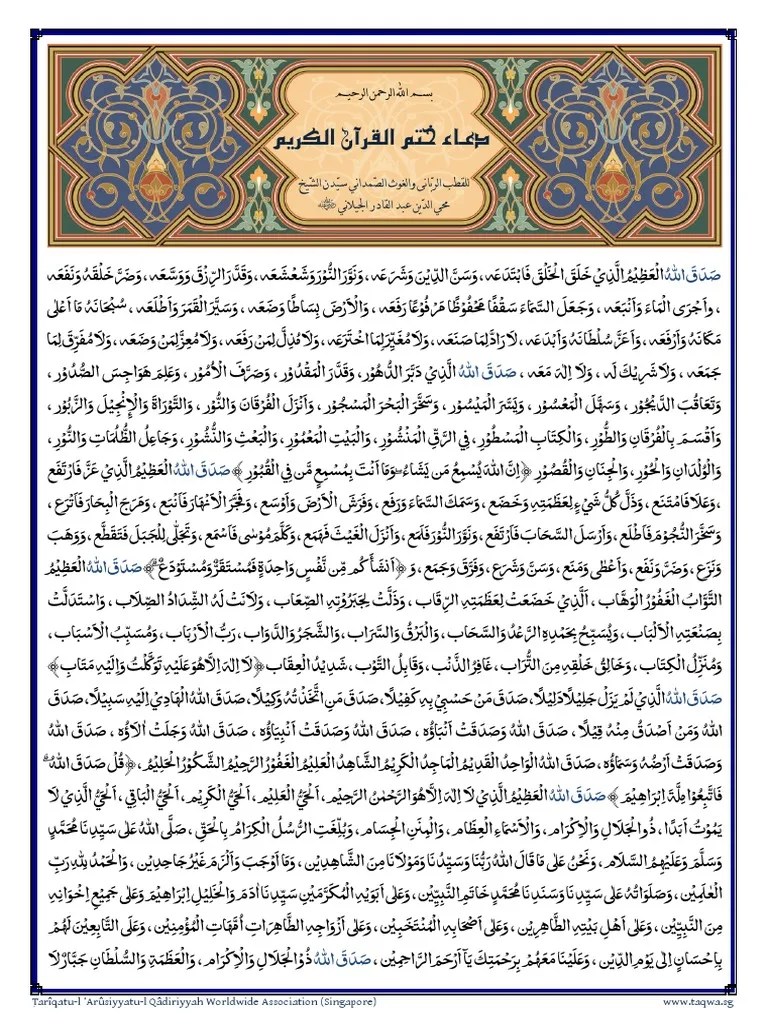 بسم الله الرحمن الرحيم
دعاء ختم القرآن الكريم
للقطب الرباني والغوث الصمداني سيدن الشيخ
محي الدين عبد القادر الجيلاني
صَدَقَ اللهُ الْعَظِيْمُ الَّذِيْ خَلَقَ الْخَلْقَ فَابْتَدَعَه، وَسَنَّ الدِّيْنَ وَشَرَعَه، وَنَوَّرَ النُّوْرَ وَشَعْشَعَه، وَقَدَّرَ الرِّزْقَ وَوَسَّعَه، وَضَرَّ خَلْقَهُ وَنَفَعَه
، وأَجْرَى الْمَاءَ وَأَنْبَعَه، وَجَعَلَ السَّمَاءَ سَقْفًا مَحْفُوْظًا مَرْفُوْعًا رَفَعَه، وَالْأَرْضَ بِسَاطًا وَضَعَه، وَسَيَّرَ الْقَمَرَ وَأَطْلَعَه، سُبْحَانَهُ مَا أَعْلَى
مَكَانَهُ وَأَرْفَعَه، وَأَعَزَّ سُلْطَانَهُ وَأَبْدَعَه، لَا رَادَّ لِمَا صَنَعَه، وَلَا مُغَيِّرَ لِمَا اخْتَرَعَه، وَلَا مُذِلَّ لِمَنْ رَفَعَه، وَلَا مُعِزَّ لِمَنْ وَضَعَه، وَلَا مُفَرِّقَ لِمَا
جَمَعَه، وَلَا شَرِيْكَ لَه، وَلَا إِلٰهَ مَعَه، صَدَقَ اللهُ الَّذِيْ دَبَّرَ الدُّهُوْر، وَقَدَّرَ الْمَقْدُوْر، وَصَرَّفَ الْأُمُوْر، وَعَلِمَ هَوَاجِسَ الصُّدُوْر،
وَتَعَاقُبَ الدَّيْجُوْر، وَسَهَّلَ الْمَعْسُوْر، وَيَسَّرَ الْمَيْسُوْر، وَسَخَّرَ الْبَحْرَ الْمَسْجُوْر، وَأَنْزَلَ الْفُرْقَانَ وَالنُّوْر، وَالتَّوْرَاةَ وَالْإِنْجِيْلَ وَالزَّبُوْر،
وَأَقْسَمَ بِالْفُرْقَانِ وَالطُّوْرِ، وَالْكِتَابِ الْمَسْطُوْرِ، فِي الرَّقِّ الْمَنْشُوْرِ، وَالْبَيْتِ الْمَعْمُوْرِ، وَالْبَعْثِ وَالنُّشُوْرِ، وَجَاعِلُ الظُّلُمَاتِ وَالنُّوْرِ،
وَالْوِلْدَانِ وَالْحُوْرِ، وَالْجِنَانِ وَالْقُصُوْرِ ﴿إِنَّ اللهَ يُسْمِعُ مَن يَشَاءُ ۖ وَمَا أَنْتَ بِمُسْمِعٍ مَّن فِي الْقُبُوْرِ﴾ صَدَقَ اللهُ الْعَظِيْمُ الَّذِيْ عَزَّ فَارْتَفَع
، وَعَلَا فَامْتَنَع، وَذَلَّ كُلُّ شَيْءٍ لِعَظَمَتِهِ وَخَضَع، وَسَمَكَ السَّمَاءَ وَرَفَع، وَفَرَشَ الْأَرْضَ وَأَوْسَع، وَفَجَّرَ الْأَنْهَارَ فَأَنْبَع، وَمَرَجَ الْبِحَارَ فَأَتْرَع،
وَسَخَّرَ النُّجُوْمَ فَأَطْلَع، وَأَرْسَلَ السَّحَابَ فَارْتَفَع، وَنَوَّرَ النُّوْرَ فَلَمَع، وَأَنْزَلَ الْغَيْثَ فَهَمَع، وَكَلَّمَ مُوْسٰى فَأَسْمَع، وَتَجَلّٰى لِلْجَبَلِ فَتَقَطَّع، وَوَهَبَ
وَنَزَع، وَضَرَّ وَنَفَع، وَأَعْطٰى وَمَنَع، وَسَنَّ وَشَرَع، وَفَرَّقَ وَجَمَع، وَ ﴿أَنشَأَكُم مِّن نَّفْسٍ وَاحِدَةٍ فَمُسْتَقَرٌّ وَمُسْتَوْدَعٌ ۗ﴾ صَدَقَ اللهُ الْعَظِيْمُ
التَّوَّابُ الْغَفُوْرُ الْوَهَّاب، الَّذِيْ خَضَعَتْ لِعَظَمَتِهِ الرِّقَاب، وَذَلَّتْ لِجَبَرُوْتِهِ الصِّعَاب، وَلَانَتْ لَهُ الشِّدَادُ الصِّلَاب، وَاسْتَدَلَّتْ
بِصَنْعَتِهِ الْأَلْبَاب، وَيُسَبِّحُ بِحَمْدِهِ الرَّعْدُ وَالسَّحَاب، وَالْبَرْقُ وَالسَّرَاب، وَالشَّجَرُ وَالدَّوَاب، رَبُّ الْأَرْبَاب، وَمُسَبِّبُ الْأَسْبَاب،
وَمُنَزِّلُ الْكِتَاب، وَخَالِقُ خَلْقِهِ مِنَ التُّرَاب، غَافِرُ الذَّنْب، وَقَابِلُ التَّوْب، شَدِيْدُ الْعِقَاب ﴿لَا إِلٰهَ إِلَّا هُوَ عَلَيْهِ تَوَكَّلْتُ وَإِلَيْهِ مَتَابِ﴾
صَدَقَ اللهُ الَّذِيْ لَمْ يَزَلْ جَلِيْلًا دَلِيْلًا، صَدَقَ مَنْ حَسْبِيْ بِهِ كَفِيْلًا، صَدَقَ مَنِ اتَّخَذْتُهُ وَكِيْلًا، صَدَقَ اللهُ الْهَادِيْ إِلَيْهِ سَبِيْلًا، صَدَقَ
اللهُ وَمَنْ أَصْدَقُ مِنْهُ قِيْلًا، صَدَقَ اللهُ وَصَدَقَتْ أَنْبَاؤُه، صَدَقَ اللهُ وَصَدَقَتْ أَنْبِيَاؤُه، صَدَقَ اللهُ وَجَلَّتْ اٰلَاؤُه، صَدَقَ اللهُ
وَصَدَقَتْ أَرْضُهُ وَسَمَاؤُه، صَدَقَ اللهُ الْوَاحِدُ الْقَدِيْمُ الْمَاجِدُ الْكَرِيْمُ الشَّاهِدُ الْعَلِيْمُ الْغَفُوْرُ الرَّحِيْمُ الشَّكُوْرُ الْحَلِيْمُ، ﴿قُلْ صَدَقَ اللهُ ۗ
فَاتَّبِعُوْا مِلَّةَ إِبْرَاهِيْمَ﴾ صَدَقَ اللهُ الْعَظِيْمُ الَّذِيْ لَا إِلٰهَ إِلَّا هُوَ الرَّحْمٰنُ الرَّحِيْمُ، اَلْحَيُّ الْعَلِيْمُ، اَلْحَيُّ الْكَرِيْمُ، اَلْحَيُّ الْبَاقِي، اَلْحَيُّ الَّذِيْ لَا
يَمُوْتُ أَبَدًا، ذُو الْجَلَالِ وَالْإِكْرَامِ، وَالْأَسْمَاءِ الْعِظَامِ، وَالْمِنَنِ الْجِسَامِ، وَبُلِّغَتِ الرُّسُلُ الْكِرَامُ بِالْحَقِّ، صَلَّى اللهُ عَلٰى سَيِّدِنَا مُحَمَّدٍ
وَسَلَّمَ وَعَلَيْهِمُ السَّلَام، وَنَحْنُ عَلٰى مَا قَالَ اللهُ رَبُّنَا وَسَيِّدُنَا وَمَوْلَانَا مِنَ الشَّاهِدِيْن، وَمَا أَوْجَبَ وَأَلْزَمَ غَيْرُ جَاحِدِيْن، وَالْحَمْدُ لِلّٰهِ رَبِّ
الْعٰلَمِيْن، وَصَلَوَاتُهُ عَلٰى سَيِّدِنَا وَسَنَدِنَا مُحَمَّدٍ خَاتَمِ النَّبِيِّيْن، وَعَلٰى أَبَوَيْهِ الْمُكَرَّمَيْنِ سَيِّدِنَا اٰدَمَ وَالْخَلِيْلِ إِبْرَاهِيْمَ وَعَلٰى جَمِيْعِ إِخْوَانِهِ
مِنَ النَّبِيِّيْن، وَعَلٰى أَهْلِ بَيْتِهِ الطَّاهِرِيْن، وَعَلٰى أَصْحَابِهِ الْمُنْتَخَبِيْن، وَعَلٰى أَزْوَاجِهِ الطَّاهِرَاتِ أُمَّهَاتِ الْمُؤْمِنِيْن، وَعَلَى التَّابِعِيْنَ لَهُمْ
بِإِحْسَانٍ إِلٰى يَوْمِ الدِّيْن، وَعَلَيْنَا مَعَهُمْ بِرَحْمَتِكَ يَا أَرْحَمَ الرَّاحِمِيْن، صَدَقَ اللهُ ذُو الْجَلَالِ وَالْإِكْرَام، وَالْعَظَمَةِ وَالسُّلْطَانِ جَبَّارٌ لَا
Tarîqatu-l 'Arûsiyyatu-l Qâdiriyyah Worldwide Association (Singapore)
www.taqwa.sg